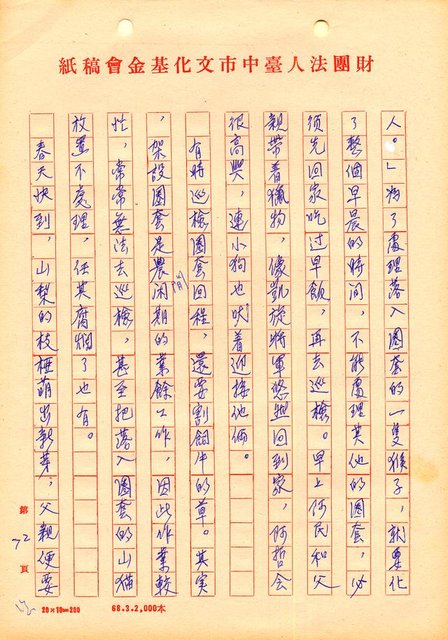 財團法人臺中市文化基金會稿紙
人。」為了處理落入圈套的一隻猴子，就要化
了整個早晨的時间，不能處理其他的圈套，必
須先回家吃过早飯，再去巡檢。早上何民和父
親带着獵物，像凱旋將軍悠然回到家，何哲会
很高興，連小狗也吠着迎接他倆。
有時巡檢圈套回程，還要割飼牛的草。其实
，架設圈套是農闲期的業餘工作，因此作業較
忙，常常無法去巡檢，甚至把落入圈套的山猫
放置不處理，任其腐爛了也有。
春天快到，山梨的枝椏萌出新芽，父親便要
第72頁
20×10=200
68.3.2,000本